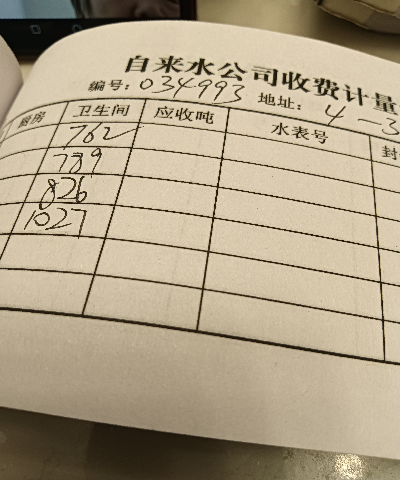 自来水公司收费计量
编号: 034993 地址: 4-3
厨房 卫生间 应收吨 水表号 封
762
789
826
1027